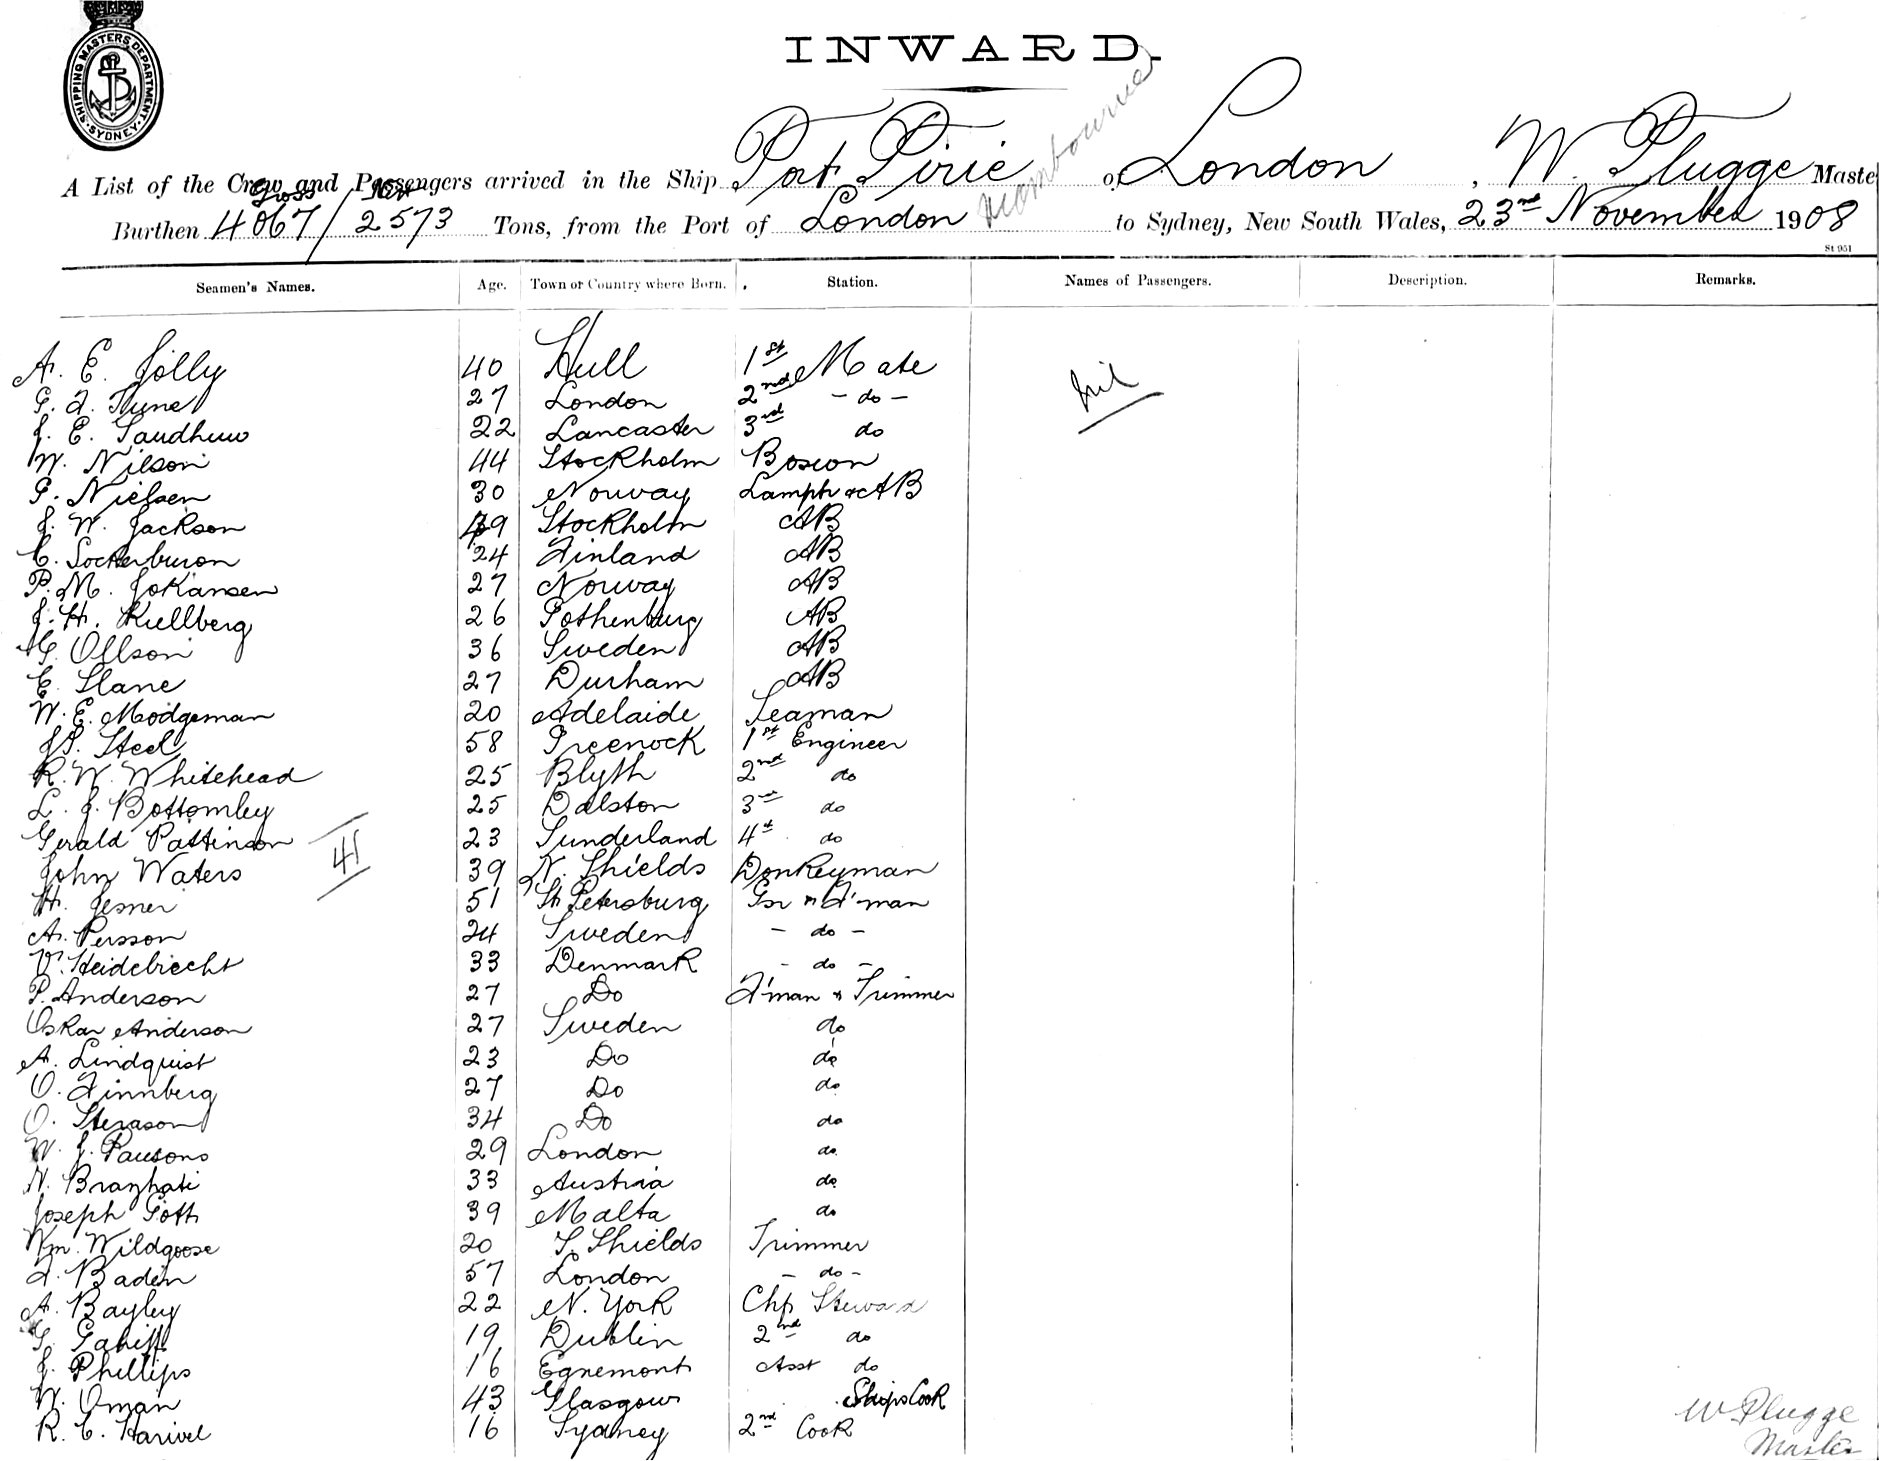 SHIPPING MASTERS DEPARTMENT. SYDNEY.
INWARD.
A List of the Crew and Passengers arrived in the Ship Port Pirie of London, W. Plugge Maste
Gross Nett
Burthen 4067/2573 Tons, from the Port of London to Sydney, New South Wales, 23rd November 1908
St 951
Seamen's Names. Age. Town or Country where Born. Station. Names of Passengers. Description. Remarks.
A. E. Jolly 40 Hull 1st Mate nil
G. F. Tune 27 London 2nd - do -
J. E. 22 Lancaster 3rd do
W. Nilson 44 Stockholm Boswn
P. Nielsen 30 Norway Lamps & AB
J. W. Jackson 39 Stockholm AB
C. 24 Finland AB
P. M. Johansen 27 Norway AB
J. H. Kullberg 26 Gothenburg AB
G. Ollson 36 Sweden AB
E. Slane 27 Durham AB
W. E. Modgeman 20 Adelaide Seaman
J. S. Steel 58 Greenock 1st Engineer
R. W. Whitehead 25 Blyth 2nd do
L. J. Bottomley 25 Dalston 3rd do
Gerald Pattinson 23 Sunderland 4th do
41
John Waters 39 N. Shields Donkeyman
H. Jesner 51 St Petersburg Gsr & F'man
A. Persson 24 Sweden - do -
V. Heidebrecht 33 Denmark - do -
P. Anderson 27 Do F'man & Trimmer
Oskar Anderson 27 Sweden do
A. Lindquist 23 Do do
O. Finnberg 27 Do do
O. 34 Do do
W. J. Parsons 29 London do
N. 33 Austria do
Joseph Gott 39 Malta do
Wm. Wildgoose 20 S. Shields Trimmer
F. Baden 57 London - do -
A. Bayley 22 N. York Chf Steward
G. 19 Dublin 2nd do
J. Phillips 16 Egnemont Asst do
W. Oman 43 Glasgow Ships Cook
R. C. Harivel 16 Sydney 2nd Cook
W Plugge
Master